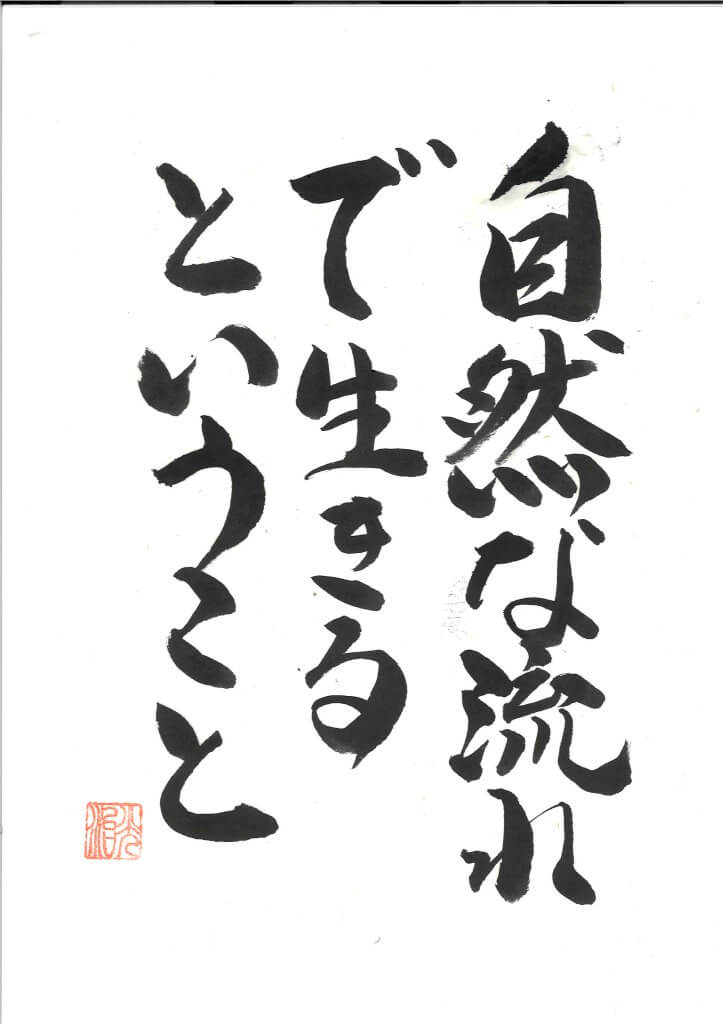 自然な流れ
で生きる
ということ